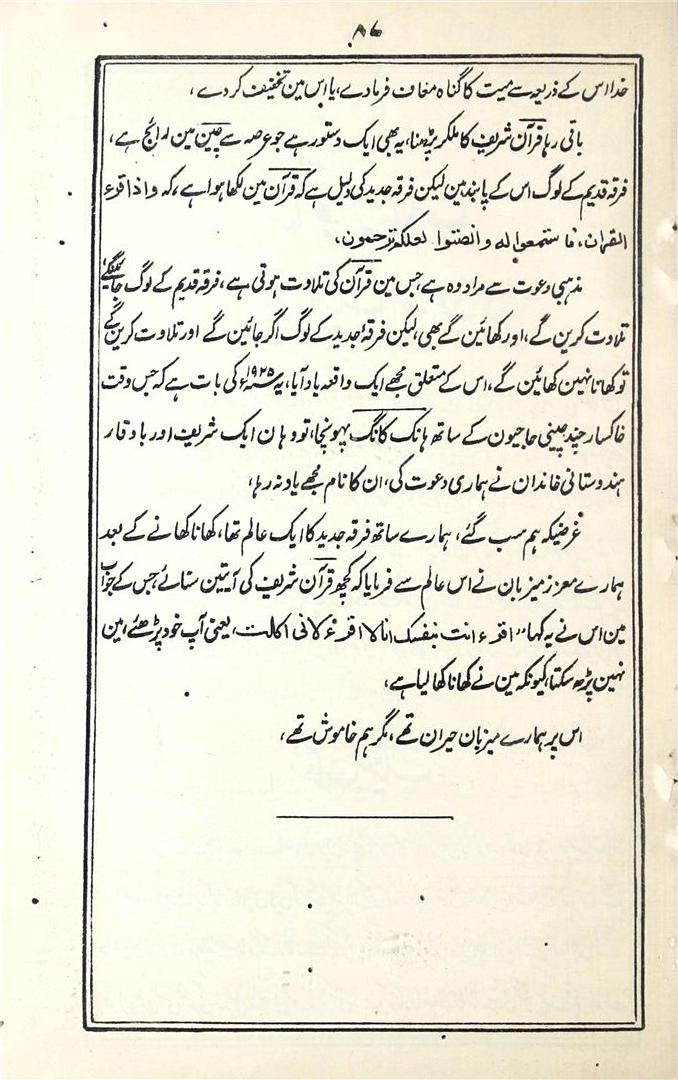 ۸۷
خدا اس کے ذریعہ سے میت کا گناہ معاف فرمادے، یا اس مین تخفیف کردے،
باقی رہا قرآن شریف کا ملکر پڑھنا، یہ بھی ایک دستور ہے جو عرصہ سے چین مین رائج ہے،
فرقہ قدیم کے لوگ اس کے پابند ہین لیکن فرقہ جدید کی دلیل ہے کہ قرآن مین لکھا ہوا ہے، کہ واذا قرء
القران، فاستمعوا له وانصتوا لعلكم ترحمون،
مذہبی دعوت سے مراد وہ ہے، جس مین قرآن کی تلاوت ہوتی ہے، فرقہ قدیم کے لوگ جائینگے
تلاوت کرین گے، اور کھائین گے بھی، لیکن فرقہ جدید کے لوگ اگر جائین گے اور تلاوت کرین گے
تو کھانا نہین کھائین گے، اس کے متعلق مجھے ایک واقعہ یاد آیا، یہ ۱۹۲۵ء کی بات ہے کہ جس وقت
خاکسار چند چینی حاجیون کے ساتھ ہانک کانگ پہونچا، تو وہان ایک شریف اور باوقار
ہندوستانی خاندان نے ہماری دعوت کی، ان کا نام مجھے یاد نہ رہا،
غرضیکہ ہم سب گئے، ہمارے ساتھ فرقہ جدید کا ایک عالم تھا، کھانا کھانے کے بعد
ہمارے معزز میزبان نے اس عالم سے فرمایا کہ کچھ قرآن شریف کی آیتین سنائے، جس کے جواب
مین اس نے یہ کہا "اقرء انت بنفسك انا لا اقرء لانی اكلت، یعنی آپ خود پڑھئے، مین
نہین پڑھ سکتا، کیونکہ مین نے کھانا کھا لیا ہے،
اس پر ہمارے میزبان حیران تھے، مگر ہم خاموش تھے،